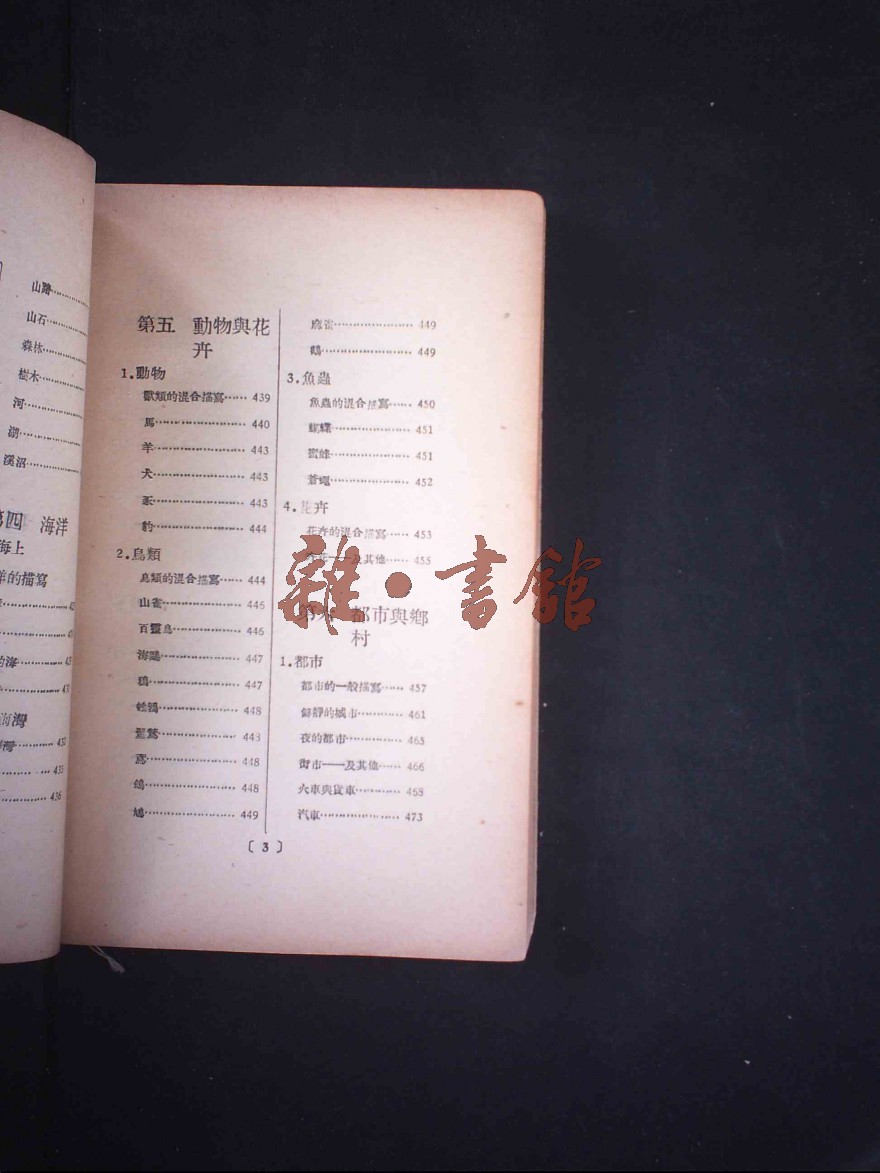 山路
山石
森林
樹木
河
湖
溪沼
四 海洋
海上
洋的描寫
的海
海灣
432
435
436
第五 動物與花
卉
1.動物
獸類的混合描寫······ 439
馬······ 440
羊······ 443
犬······ 443
豕······ 443
豹······ 444
2.鳥類
鳥類的混合描寫······ 444
山雀······ 446
百靈鳥······ 446
海鷗······ 447
鴉······ 447
······ 448
鴛鴦······ 448
鳶······ 448
鴿······ 448
鳩······ 449
麻雀······ 449
鶴······ 449
3.魚蟲
魚蟲的混合描寫······ 450
蝴蝶······ 451
蜜蜂······ 451
蒼蠅······ 452
4.花卉
花卉的混合描寫······ 453
及其他······ 455
第六 都市與鄉
村
1.都市
都市的一般描寫······ 457
僻靜的城市······ 461
夜的都市······ 465
街市——及其他······ 466
火車與貨車······ 468
汽車······ 473
〔 3 〕
雜·書館